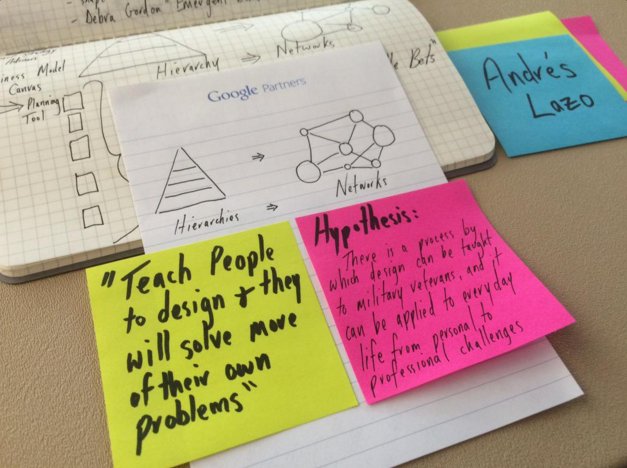 - Debra Gordon "Emergent
Hierarchy ⇒ Networks
Business Model
Canvas
→ Planning
Tool
Bets"
Google Partners
⇒
Hierarchies ⇒ Networks
Andrés
Lazo
"Teach People
to design & they
will solve more
of their own
problems"
Hypothesis:
There is a process by
which design can be taught
to military veterans, and it
can be applied to everyday
life from personal to
professional challenges